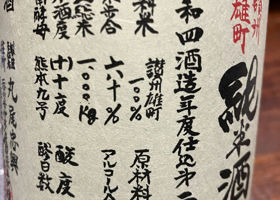 讃州雄町
純米酒
和四酒造年度仕込第二
料米 讃州雄町 原材料
歩合 六十% アルコール
総米 一〇〇〇kg
酒度 十十度 酸度
酵母 熊本九号 醪日数
酒 丸尾忠興